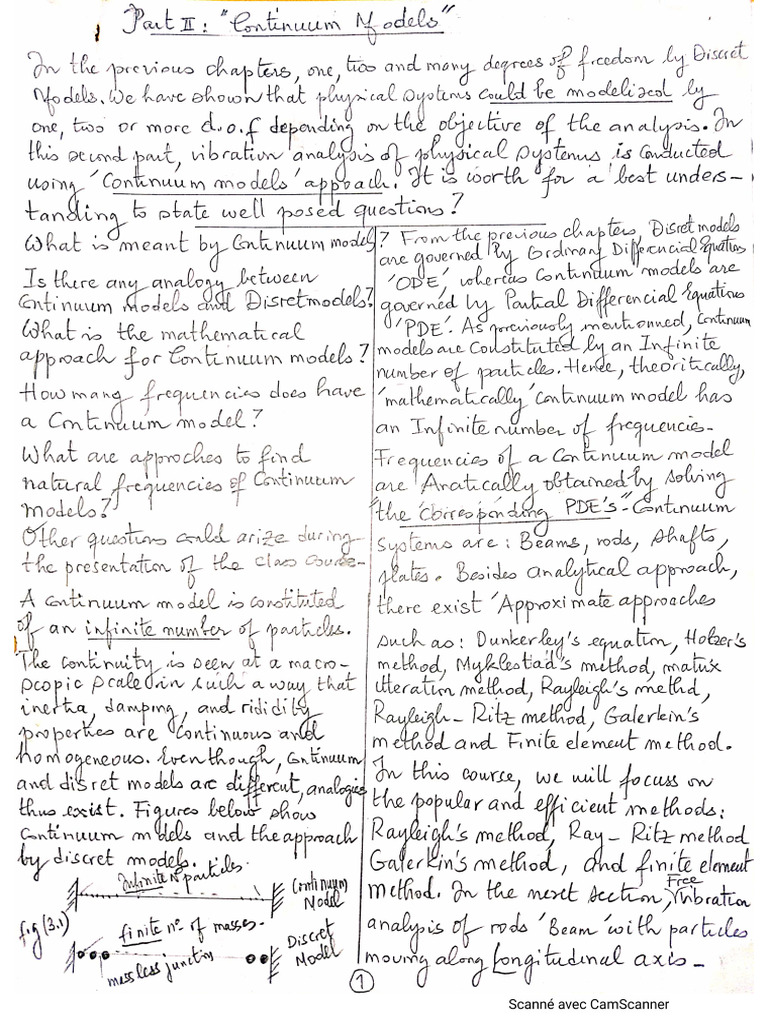 Part II : "Continuum Models"
In the previous chapters, one, two and many degrees of freedom by Discret
Models. We have shown that physical systems could be modelized by
one, two or more d.o.f depending on the objective of the analysis. In
this second part, vibration analysis of physical systems is conducted
using 'Continuum models' approach. It is worth for a best unders-
tanding to state well posed questions?
What is meant by Continuum model?
Is there any analogy between
Continuum Models and Discret models?
What is the mathematical
approach for Continuum models?
How many frequencies does have
a Continuum model?
What are approches to find
natural frequencies of Continuum
models?
Other questions could arize during
the presentation of the class course-
A continuum model is constituted
of an infinite number of particles.
The continuity is seen at a macro-
scopic scale in such a way that
inertia, damping, and rididity
properties are continuous and
homogeneous. Even though, Continuum
and discret models are different, analogies
thus exist. Figures below show
Continuum models and the approach
by discret models.
Infinite n° particles.
Continuum
Model
fig(3.1)
finite n° of masses.
massless junction
Discret
Model
From the previous chapters, Discret models
are governed by Ordinary Differencial Equations
'ODE', whereas Continuum models are
governed by Partial Differencial Equations
'PDE'. As previously mentionned, Continuum
models are Constituted by an Infinite
number of particles. Hence, theoritically,
'mathematically' continuum model has
an Infinite number of frequencies-
Frequencies of a Continuum model
are Anatically obtained by solving
"the corresponding PDE's"- Continuum
systems are : Beams, rods, shafts,
plates. Besides analytical approach,
there exist 'Approximate approaches
such as : Dunkerley's equation, Holzer's
method, Myklestad's method, matrix
itteration method, Rayleigh's methd,
Rayleigh-Ritz method, Galerkin's
method and Finite element method.
In this course, we will focuss on
the popular and efficient methods:
Rayleigh's method, Ray-Ritz method
Galerkin's method, and finite element
method. In the next section, Free vibration
analysis of rods 'Beam' with particles
moving along Longitudinal axis-
1
Scanné avec CamScanner